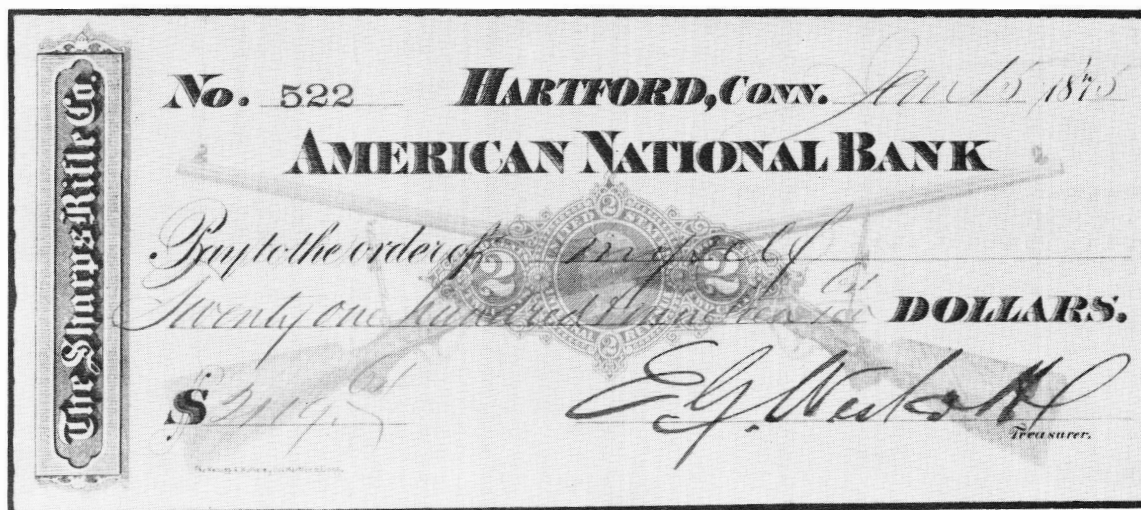 The Sharps Rifle Co.
No. 522 HARTFORD, CONN. Jan 15 1875
AMERICAN NATIONAL BANK
2 2
UNITED STATES
Pay to the order of myself
2 2
Twenty one hundred & nineteen DOLLARS.
$ 2119
E. G. Westcott
Treasurer.